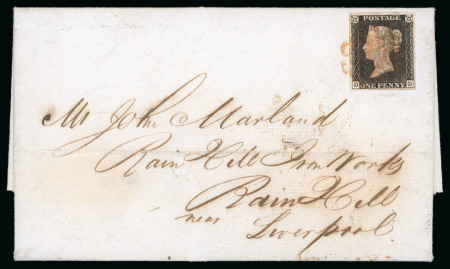 POSTAGE
ONE PENNY
Mr John Marland
Rain Hill Iron Works
Rain Hill
near Liverpool